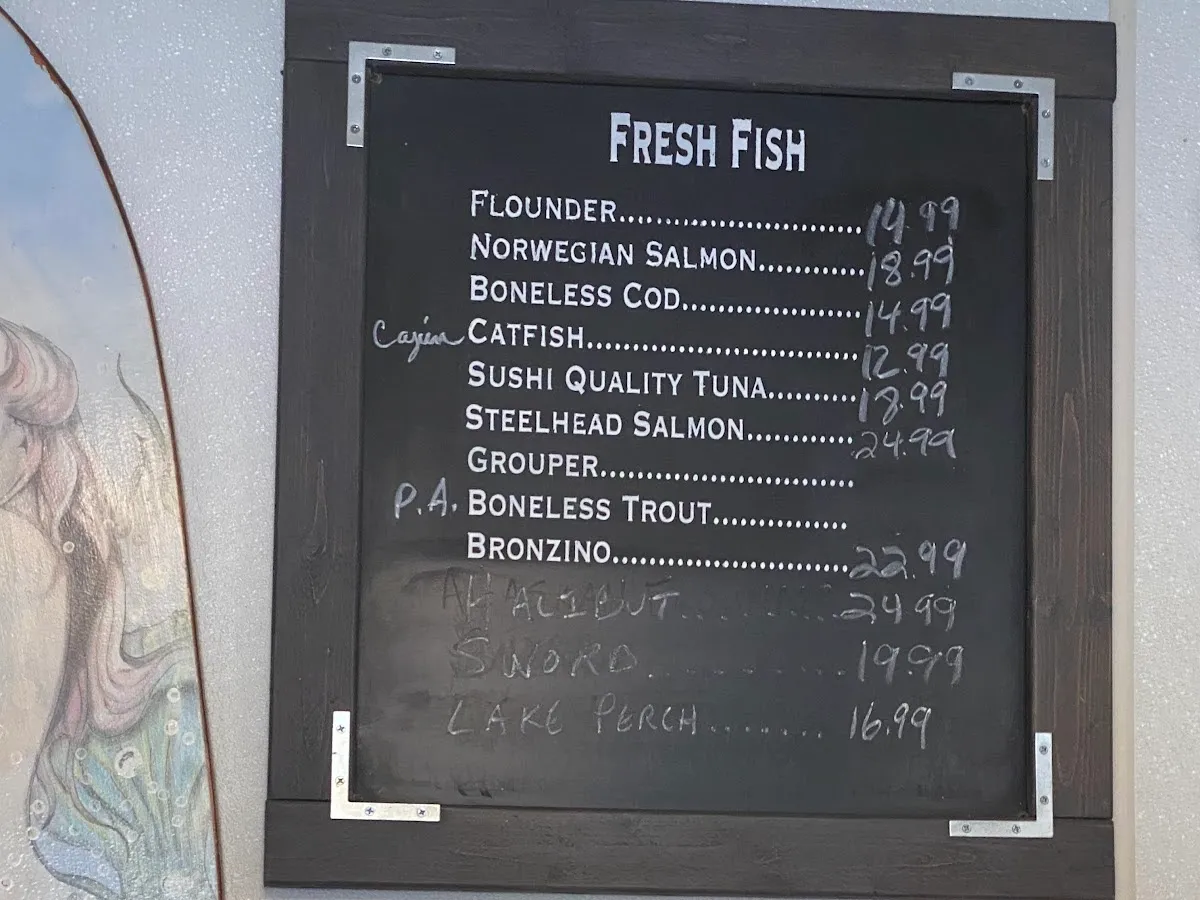 FRESH FISH
FLOUNDER........................14.99
NORWEGIAN SALMON............18.99
BONELESS COD....................14.99
Cajun CATFISH..............................12.99
SUSHI QUALITY TUNA..........18.99
STEELHEAD SALMON............24.99
GROUPER............................
P.A. BONELESS TROUT...............
BRONZINO..........................22.99
HALIBUT............24.99
SWORD..........19.99
LAKE PERCH........16.99